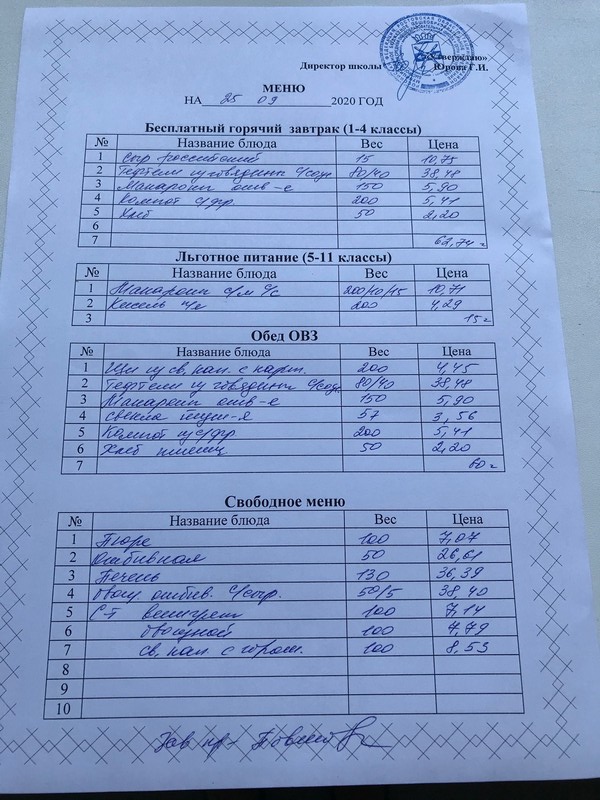 «Утверждаю»
Директор школы Юрова Г.И.
МЕНЮ
НА 25 09 2020 ГОД
Бесплатный горячий завтрак (1-4 классы)
№ Название блюда Вес Цена
1 Сыр российский 15 10,75
2 Тефтели из говядины с/соус 80/40 38,48
3 Макароны отв-е 150 5,90
4 Компот с/фр 200 5,41
5 Хлеб 50 2,20
6
7 62,74 г
Льготное питание (5-11 классы)
№ Название блюда Вес Цена
1 Макароны с/м с/с 200/10/15 10,71
2 Кисель п/я 200 4,29
3 15 г
Обед ОВЗ
№ Название блюда Вес Цена
1 Щи из св, кап. с карт. 200 4,45
2 Тефтели из говядины с/соус 80/40 38,48
3 Макароны отв-е 150 5,90
4 свекла туш-я 57 3,56
5 Компот из с/фр 200 5,41
6 Хлеб пшениц 50 2,20
7 60 г
Свободное меню
№ Название блюда Вес Цена
1 Пюре 100 7,07
2 Отбивная 50 26,61
3 Печень 130 36,39
4 отбив. с/сыр. 50/5 38,40
5 С-т винегрет 100 7,14
6 овощной 100 4,79
7 св, кап. с горош. 100 8,53
8
9
10
Зав пр-